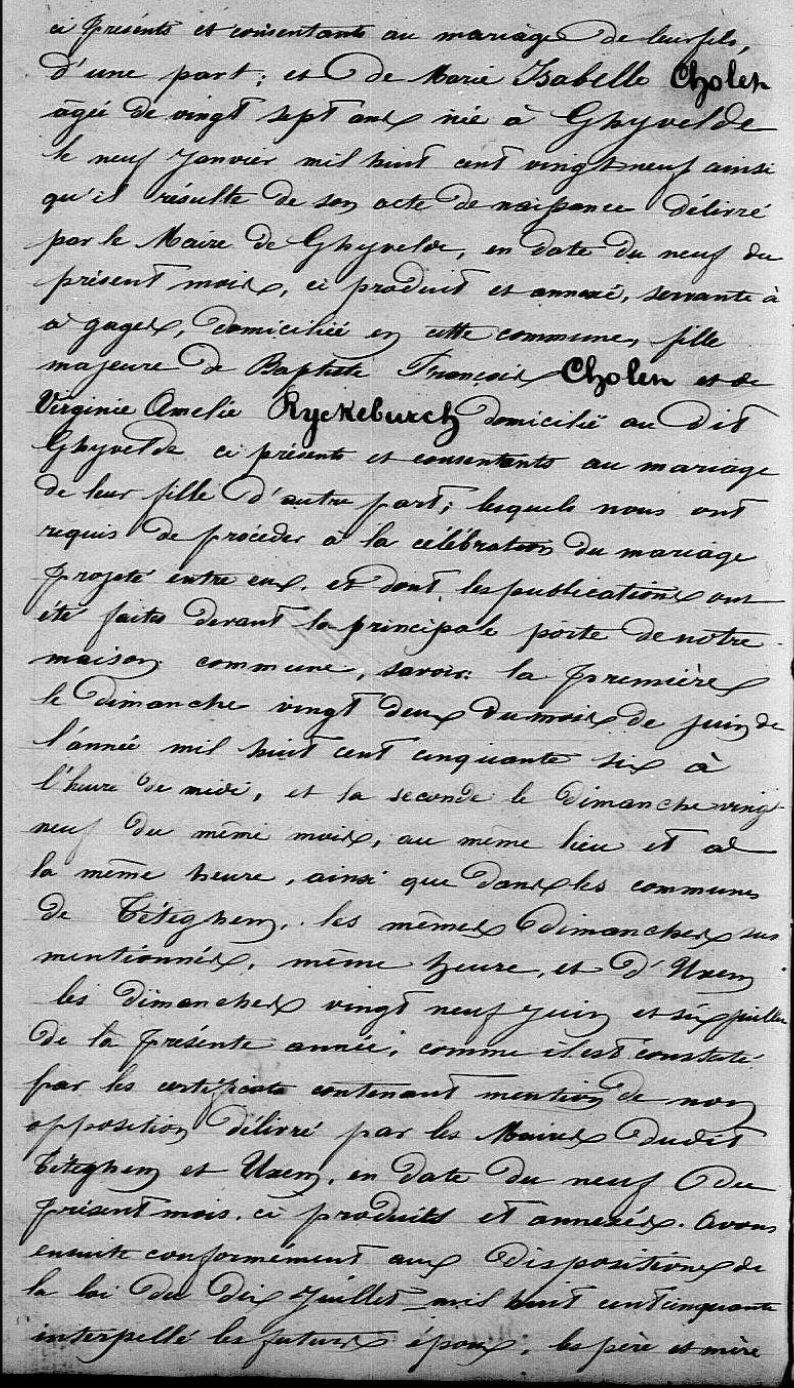 ci présents et consentants au mariage de leur fils,
d'une part; et de Marie Isabelle Cholen
agée de vingt sept ans née à Ghyvelde
le neuf Janvier mil huit cent vingt neuf ainsi
qu'il résulte de son acte de naissance délivré
par le Maire de Ghyvelde, en date du neuf du
présent mois, ci produit et annexé, servante à
à gages, domiciliée en cette commune, fille
majeure de Baptiste François Cholen et de
Virginie Amelie Ryckebusch domicilié au dit
Ghyvelde ci présents et consentants au mariage
de leur fille d'autre part; lesquels nous ont
requis de procéder à la célébration du mariage
projeté entre eux, et dont les publications ont
été faites devant la principale porte de notre
maison commune, savoir: la première
le dimanche vingt deux du mois de juin de
l'année mil huit cent cinquante six à
l'heure de midi, et la seconde le dimanche vingt
neuf du même mois, au même lieu et à
la même heure, ainsi que dans les communes
de Téteghem, les mêmes dimanches sus
mentionnés, même heure, et d'Uxem
les dimanches vingt neuf Juin et six juillet
de la présente année, comme il est constaté
par les certificats contenant mention de non
opposition délivré par les Maires dudit
Téteghem et Uxem, en date du neuf du
présent mois, ci produits et annexés. Avons
ensuite conformément aux dispositions de
la loi du dix Juillet mil huit cent cinquante
interpellé les futurs époux, les père et mère